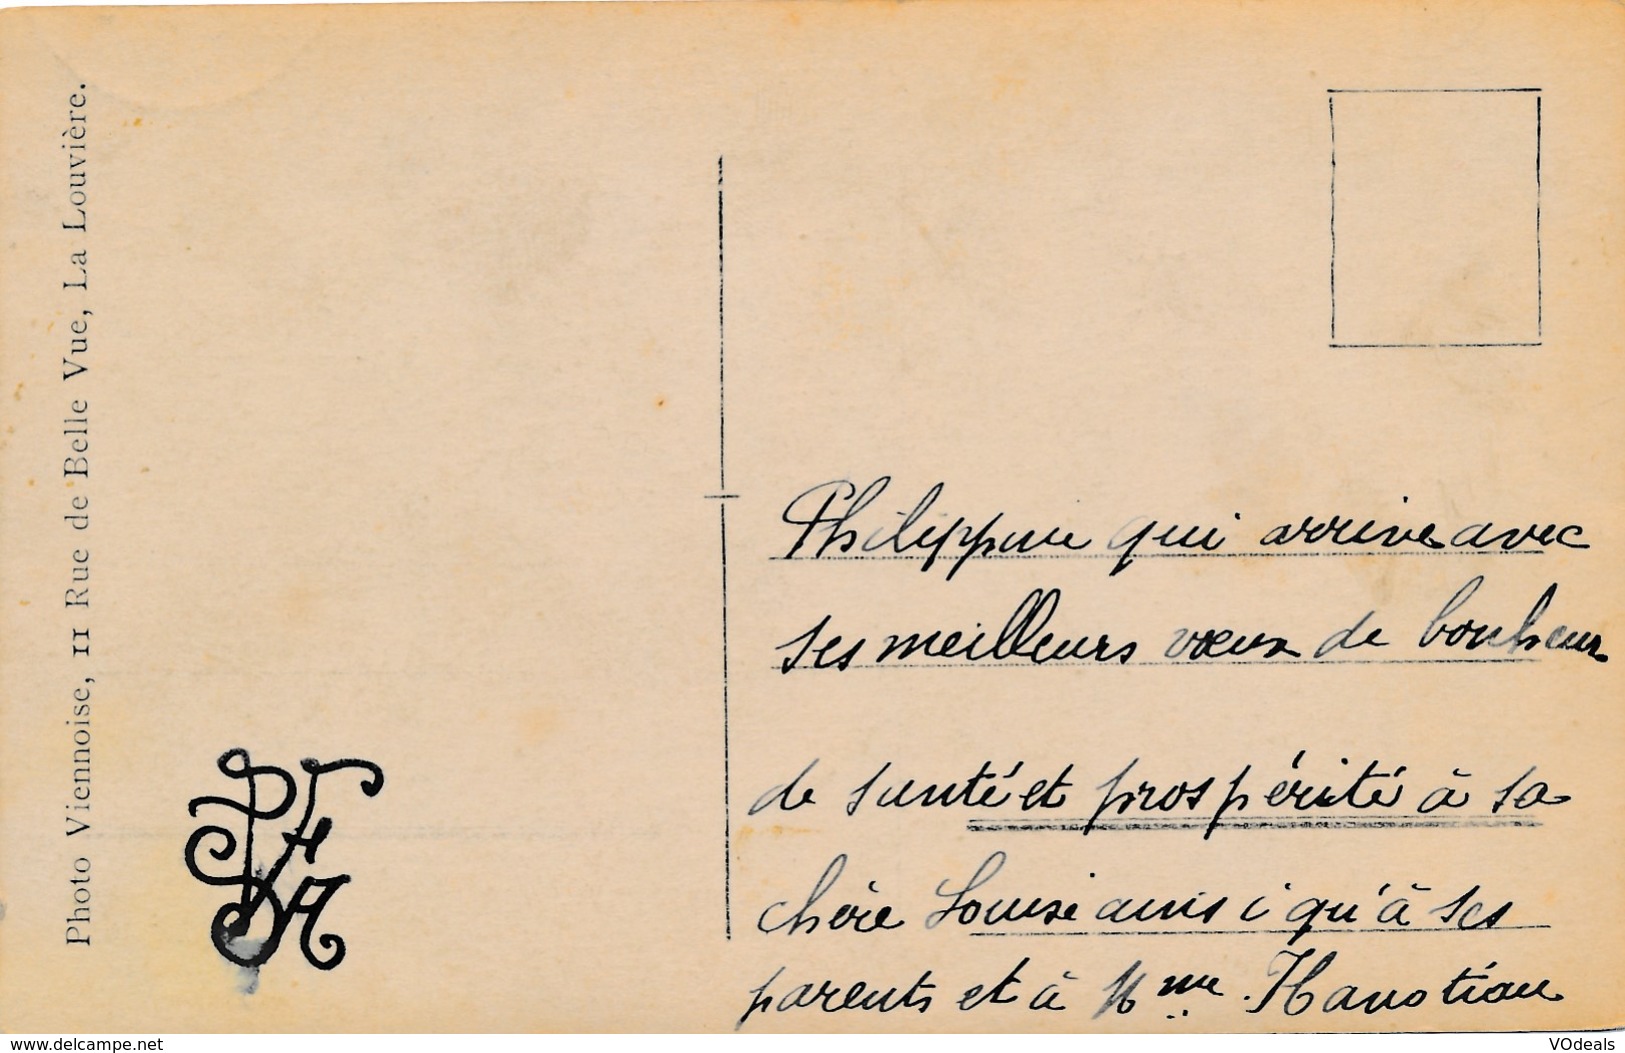 Photo Viennoise, 11 Rue de Belle Vue, La Louvière.
Philippine qui arrive avec
ses meilleurs vœux de bonheur
de santé et prospérité à sa
chère Louise ainsi qu'à ses
parents et à Mme Hanotiau
www.delcampe.net
VOdeals